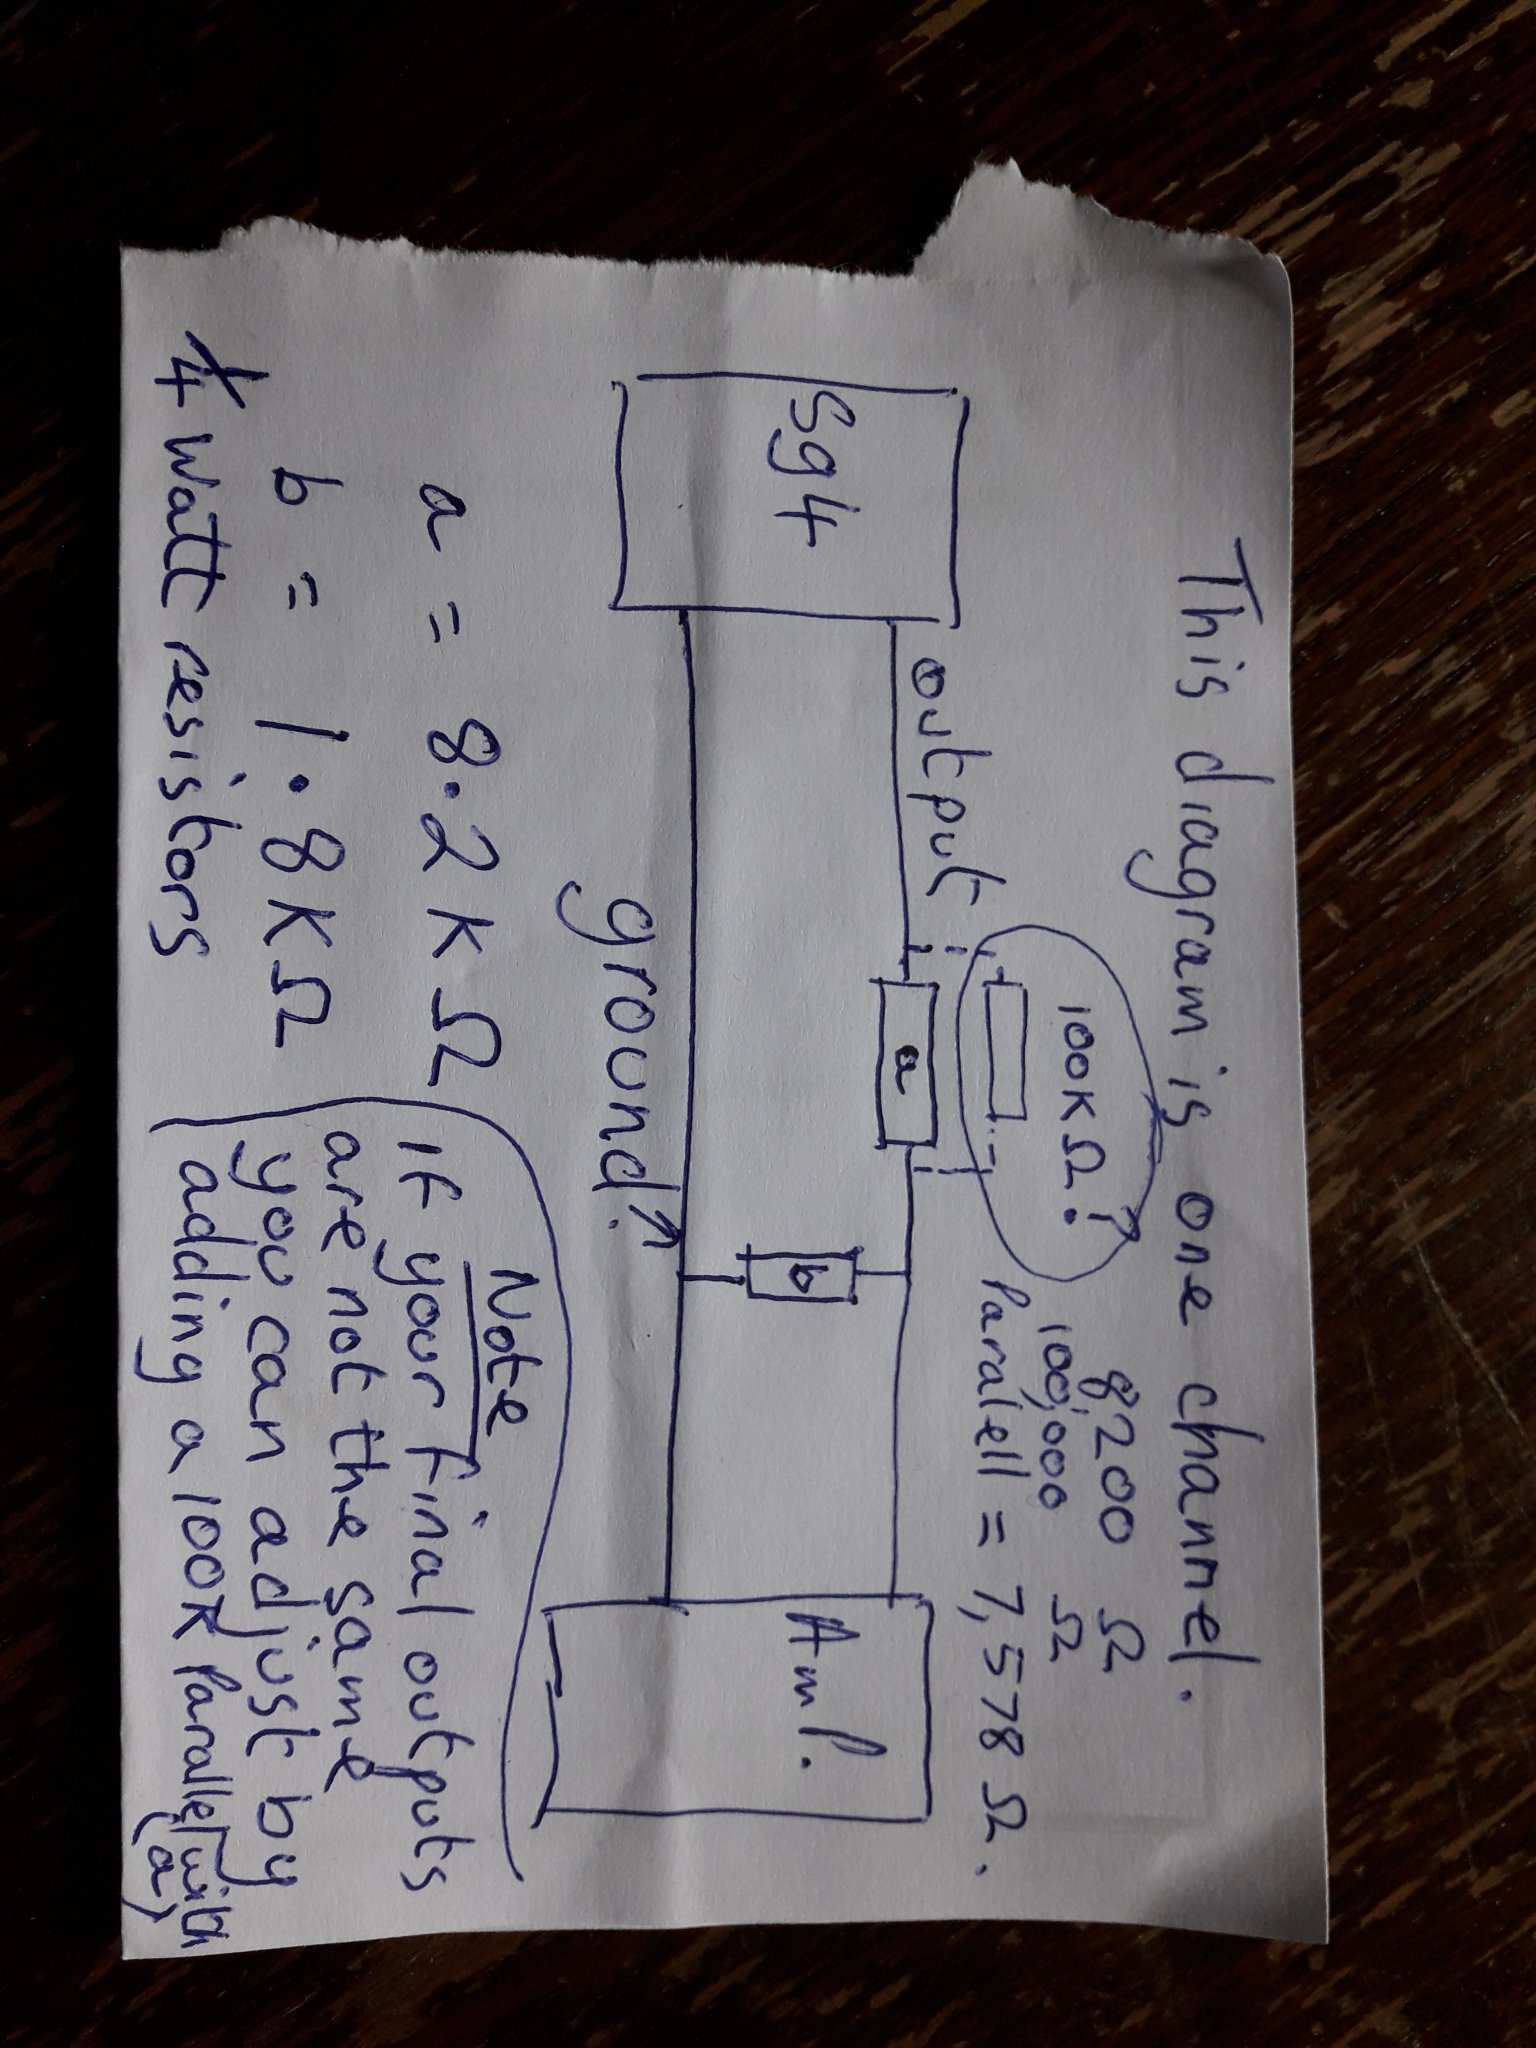 This diagram is one channel.
8,200 Ω
100KΩ?
100,000 Ω
Paralell = 7,578 Ω.
output
a
Sg4
b
Amp.
ground.
Note
a = 8.2KΩ
If your final outputs
are not the same
b = 1.8KΩ
you can adjust by
adding a 100K Parallel with
(a)
1/4 watt resistors